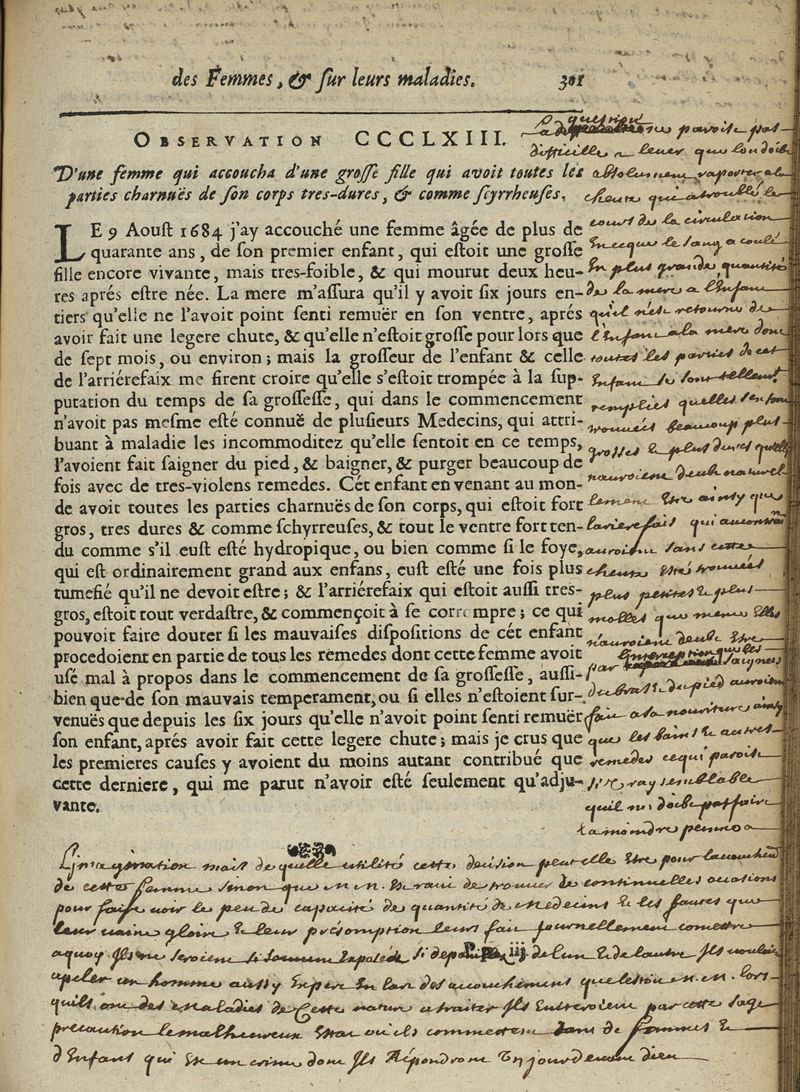 des Femmes, & sur leurs maladies. 301
OBSERVATION CCCLXIII.
D'une femme qui accoucha d'une grosse fille qui avoit toutes les
parties charnuës de son corps tres-dures, & comme scyrrheuses.
LE 9 Aoust 1684 j'ay accouché une femme âgée de plus de
quarante ans, de son premier enfant, qui estoit une grosse
fille encore vivante, mais tres-foible, & qui mourut deux heu-
res aprés estre née. La mere m'assura qu'il y avoit six jours en-
tiers qu'elle ne l'avoit point senti remuër en son ventre, aprés
avoir fait une legere chute, & qu'elle n'estoit grosse pour lors que
de sept mois, ou environ; mais la grosseur de l'enfant & celle
de l'arriérefaix me firent croire qu'elle s'estoit trompée à la sup-
putation du temps de sa grossesse, qui dans le commencement
n'avoit pas mesme esté connuë de plusieurs Medecins, qui attri-
buant à maladie les incommoditez qu'elle sentoit en ce temps,
l'avoient fait saigner du pied, & baigner, & purger beaucoup de
fois avec de tres-violens remedes. Cét enfant en venant au mon-
de avoit toutes les parties charnuës de son corps, qui estoit fort
gros, tres dures & comme schyrreuses, & tout le ventre fort ten-
du comme s'il eust esté hydropique, ou bien comme si le foye,
qui est ordinairement grand aux enfans, eust esté une fois plus
tumefié qu'il ne devoit estre; & l'arriérefaix qui estoit aussi tres-
gros, estoit tout verdastre, & commençoit à se corrompre; ce qui
pouvoit faire douter si les mauvaises dispositions de cét enfant
procedoient en partie de tous les remedes dont cette femme avoit
usé mal à propos dans le commencement de sa grossesse, aussi-
bien que de son mauvais temperament, ou si elles n'estoient sur-
venuës que depuis les six jours qu'elle n'avoit point senti remuër
son enfant, aprés avoir fait cette legere chute; mais je crus que
les premieres causes y avoient du moins autant contribué que
cette derniere, qui me parut n'avoir esté seulement qu'adju-
vante.
question
ne paroist pas
difficille a lever que lon doibt
absolument raporter a la
cheute qui a troublé le
cours de la circulation
En ce que le sang a coulé
En plus grande quantité
de la mere a l'Enfant
qu'il n'est retourné de
l'Enfant a la mere dont
toutes les parties de cet
Enfant se sont tellement
remplies quelles sen sont
trouvées beaucoup plus
grosses & plus dures quelles
nauroient deub naturel
lement Estre ainsy que
larierefais qui au contraire
auroient sans cette
cheute Esté trouvées
plus petites & plus
molles que mesme Elles
n'auroient deub Estre
par que les saignées
du bras & du pied auroient
fait a sa nouriture ainsy
que les bains & autres
remedes ce qui paroist
si vray semblable
quil ne doibt pas faire
la moindre peinne a
Limagination mais de quelle utilité cette decision peut elle Estre pour lacouchement
de cette femme sinon que m. m. Est ravi de trouver de continuelles ocasions
pour faire voir le peu de capacité de quantité de Medecins & les fautes que
leur vaine gloire & leur présomption leurs fait journellement comettre
a quoy Ils ne seroient si souvent Exposés si de lun & de lautre Ils vouloient
apeler un homme aussy Expert En lart des acouchements que lest m. m. lors
quils ont des Maladies de Cette nature a traiter Ils Eviteroient par cette sage
précaution le malheureux Estat ou ils commettent tant de femmes &
d'Enfant qui Est un crime dont Ils Répondront Un jour devant dieu
Pp iij